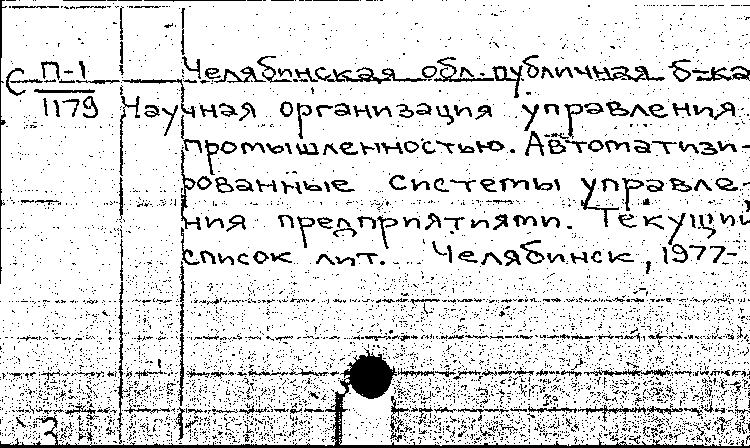 С П-1 Челябинская обл. публичная б-ка
1179 Научная организация управления
промышленностью. Автоматизи-
рованные системы управле-
ния предприятиями. Текущий
список лит. Челябинск, 1977-
3